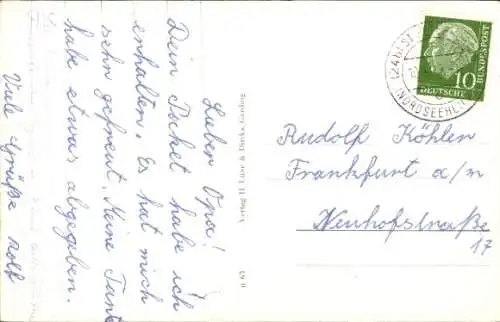 Lieber Opa!
Dein Packet habe ich
erhalten. Es hat mich
sehn gefreut. Meine Tante
habe etwas abgegeben.
Viele Grüße Rolf
Verlag H. Lüer &
(24b) ST.
(NORDSEEHEI
10
DEUTSCHE
BUNDESPOST
Rudolf Köhlen
Frankfurt a/m
Neuhofstraße
17